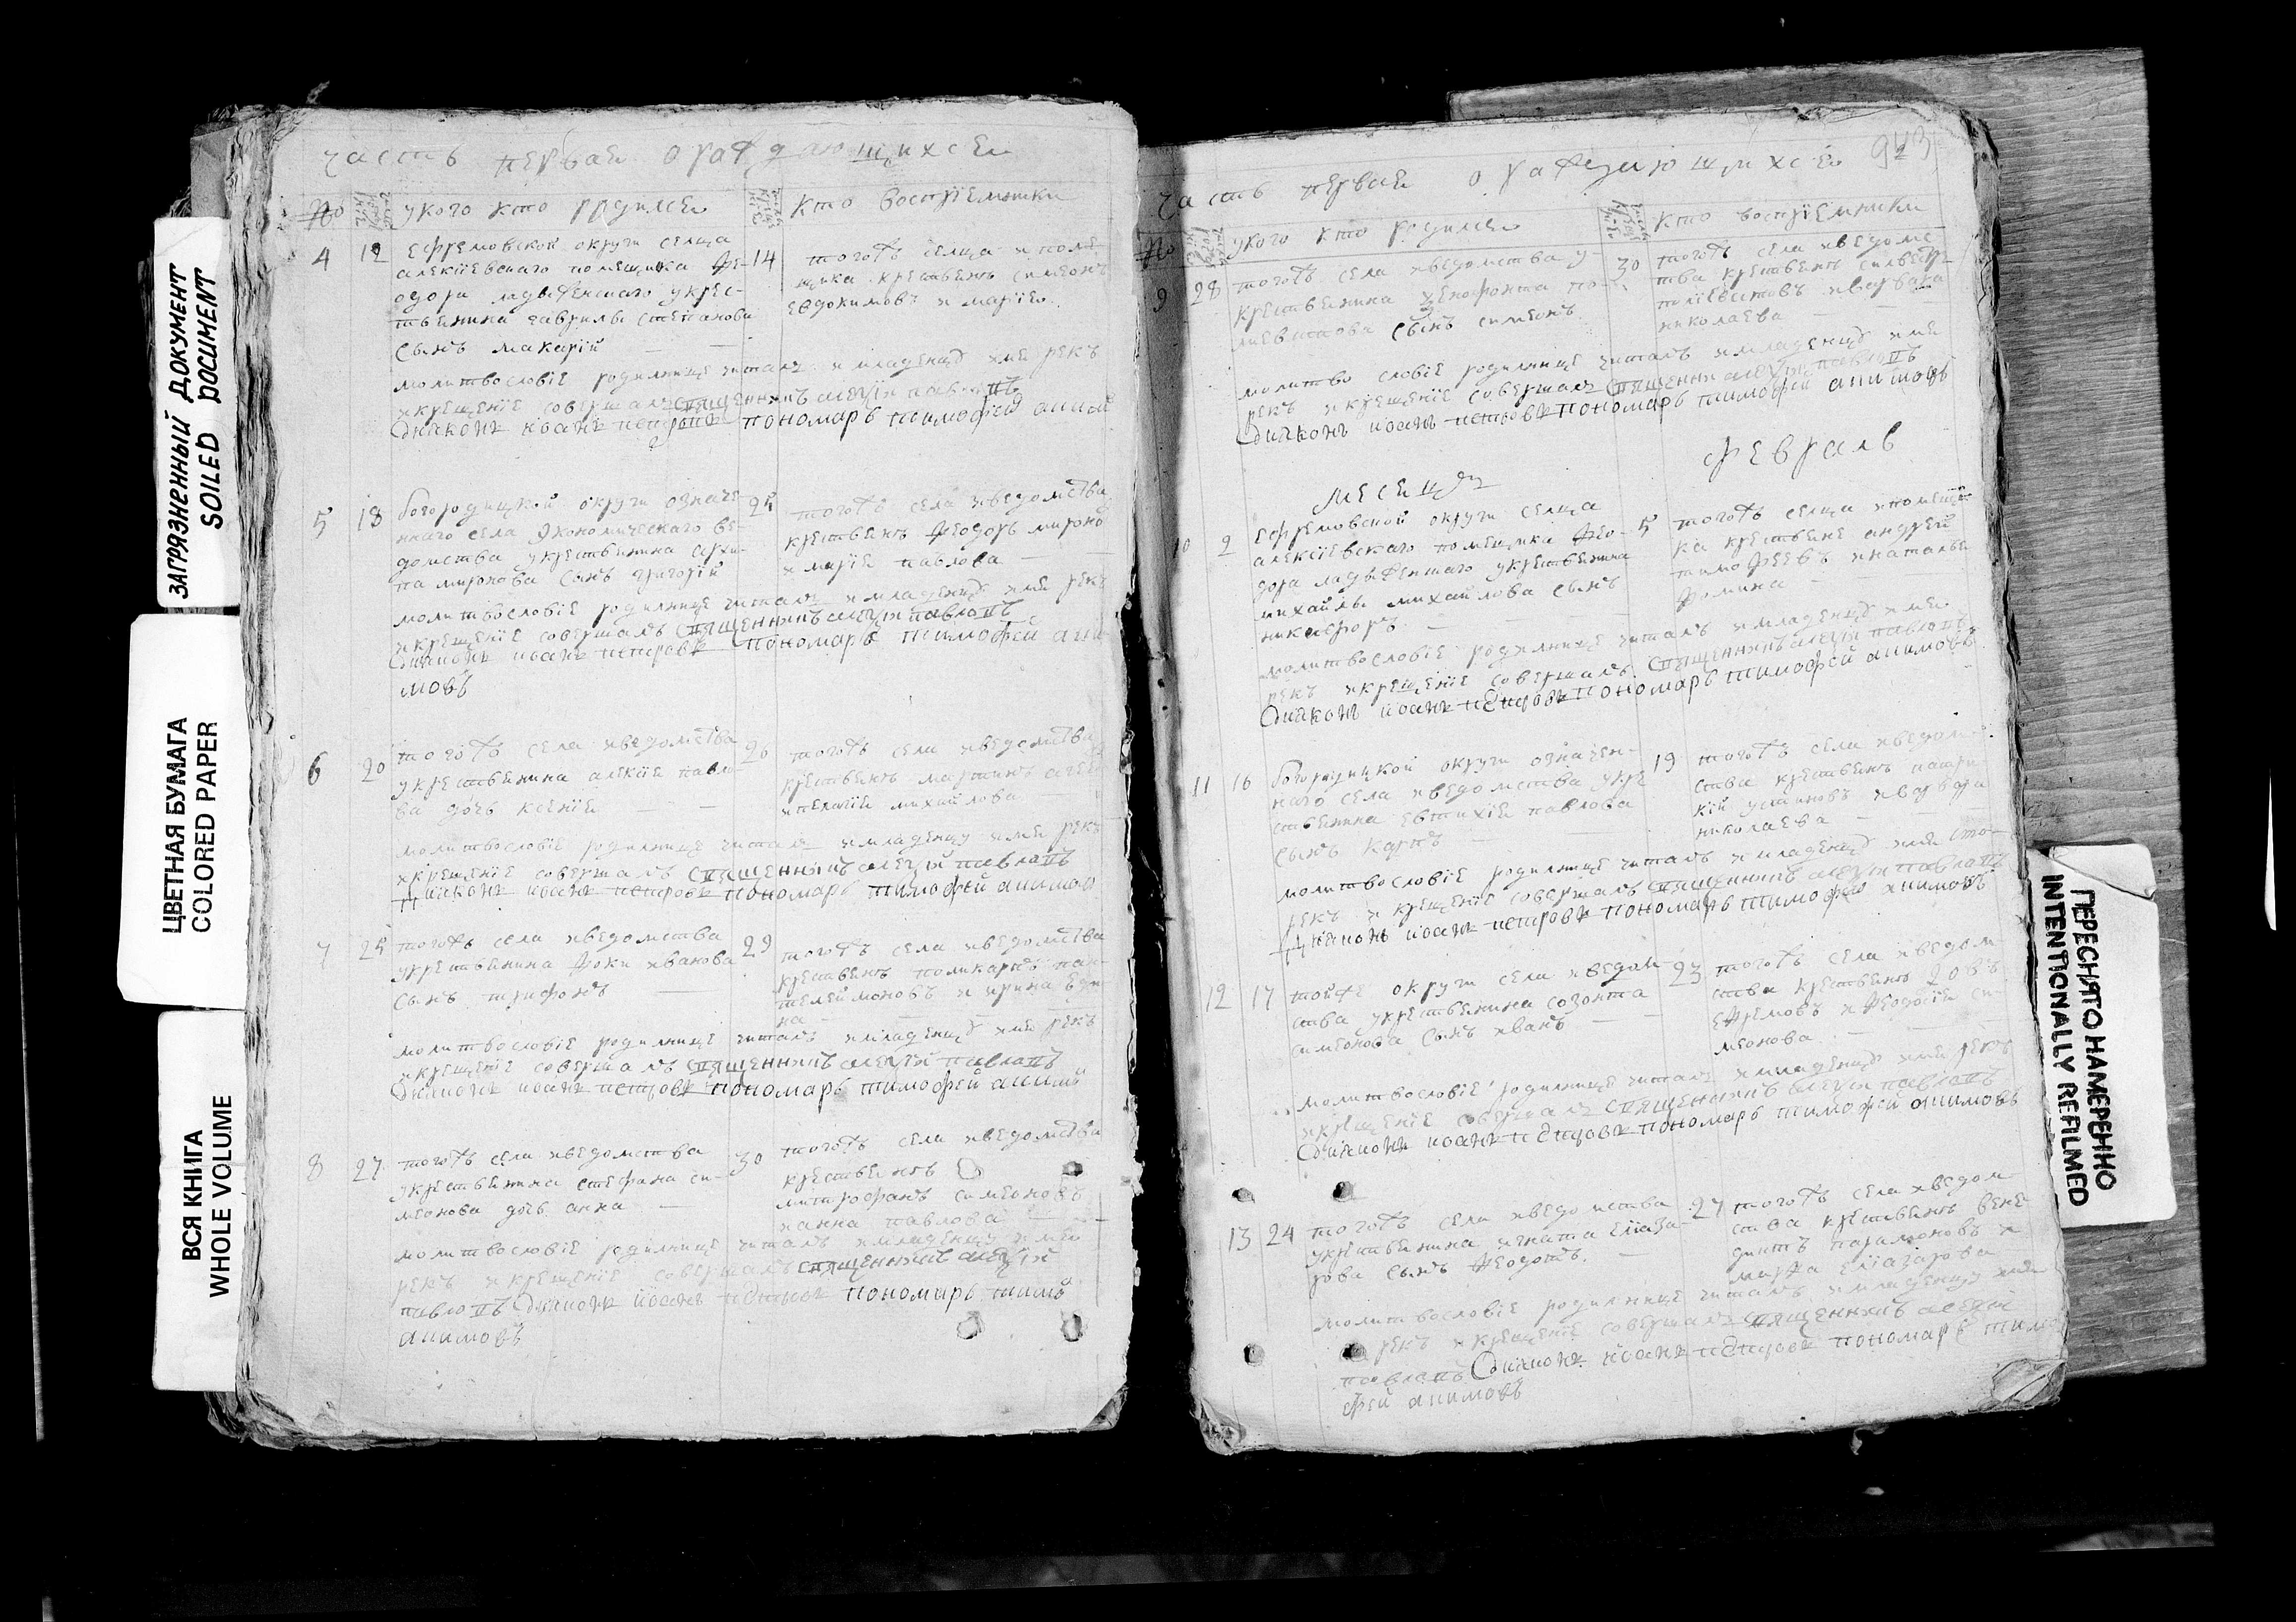 часть первая о раждающихся
No
у кого кто родился
кто восприемники
4 12 ефремовской округи селца
алексіевскаго помещика фе-
одора ладыженскаго у крес-
тьянина гаврилы степанова
сынъ макарій
14 тогожъ селца и поме
щика крестьянъ симеонъ
евдокимовъ и марія
молитвословіе родилнице читалъ и младенцу имя рекъ
и крещеніе совершалъ священникъ алеѯій павловъ
диаконъ иоанъ петровъ пономарь тимофей аки
5 18 богородицкой округи означе-
ннаго села экономическаго ве-
домства у крестьянина архи-
па миронова сынъ григорій
тогожъ села и ведомства
крестьянъ феодоръ мироно
и марія павлова
молитвословіе родилнице читалъ и младенцу имя рекъ
и крещеніе совершалъ священникъ алеѯій павловъ
диаконъ иоанъ петровъ пономарь тимофей аки
мовъ
6 20 тогожъ села и ведомства
у крестьянина алексія павло
ва дочь ксенія
тогожъ села и ведомства
крестьянъ мартинъ
и пелагія михайлова
молитвословіе родилнице читалъ и младенцу имя рекъ
и крещеніе совершалъ священникъ алеѯій павловъ
диаконъ иоанъ петровъ пономарь тимофей акимов
7 25 тогожъ села и ведомства
у крестьянина фоки иванова
сынъ трифонъ
29 тогожъ села и ведомства
крестьянъ поликарпъ пан-
телеймоновъ и ирина
на
молитвословіе родилнице читалъ и младенцу имя рекъ
и крещеніе совершалъ священникъ алеѯій павловъ
диаконъ иоанъ петровъ пономарь тимофей аким
8 27 тогожъ села и ведомства
у крестьянина стефана си-
меонова дочь анна
30 тогожъ села и ведомства
крестьянъ
митрофанъ симеоновъ
и анна павлова
молитвословіе родилнице читалъ и младенцу имя
рекъ и крещеніе совершалъ священникъ алеѯій
павловъ диаконъ иоанъ петровъ пономарь тимъ
акимовъ
часть первая о раждающихся
943
No
у кого кто родился
кто восприемники
9 28 тогожъ села и ведомства у
крестьянина ѯенофонта по-
лиевктова сынъ симеонъ
30 тогожъ села и ведомс
тва крестьянъ силвестръ
полиевктовъ и варвара
николаева
молитвословіе родилнице читалъ и младенцу имя
рекъ и крещеніе совершалъ священникъ алеѯій павловъ
диаконъ иоанъ петровъ пономарь тимофей акимовъ
месяцъ февраль
10 2 ефремовской округи селца
алексіевскаго помещика фео-
дора ладыженскаго у крестьянина
михайлы михайлова сынъ
никифоръ
5 тогожъ селца и помещи
ка крестьяне андрей
тимофеевъ и наталья
фомина
молитвословіе родилнице читалъ и младенцу имя
рекъ и крещеніе совершалъ священникъ алеѯій павловъ
диаконъ иоанъ петровъ пономарь тимофей акимовъ
11 16 богородицкой округи означен-
наго села и ведомства у кре
стьянина евтихія павлова
сынъ карпъ
19 тогожъ села и ведом
ства крестьянъ патри
кій устиновъ и варвара
николаева
молитвословіе родилнице читалъ и младенцу имя
рекъ и крещеніе совершалъ священникъ алеѯій павловъ
диаконъ иоанъ петровъ пономарь тимофей акимовъ
12 17 тойже округи села и ведом
ства у крестьянина созонта
симеонова сынъ иванъ
23 тогожъ села и ведом
ства крестьянъ
ефремовъ и феодосія си-
меонова
молитвословіе родилнице читалъ и младенцу имя рекъ
и крещеніе совершалъ священникъ алеѯій павловъ
диаконъ иоанъ петровъ пономарь тимофей акимовъ
13 24 тогожъ села и ведомства
у крестьянина игната елиаза-
рова сынъ феодотъ
27 тогожъ села и ведом
ства крестьянъ вене
диктъ парамоновъ и
марфа елиазарова
молитвословіе родилнице читалъ и младенцу имя
рекъ и крещеніе совершалъ священникъ алеѯій
павловъ диаконъ иоанъ петровъ пономарь тимо
фей акимовъ
ЗАГРЯЗНЕННЫЙ ДОКУМЕНТ
SOILED DOCUMENT
ЦВЕТНАЯ БУМАГА
COLORED PAPER
ВСЯ КНИГА
WHOLE VOLUME
ПЕРЕСНЯТО НАМЕРЕННО
INTENTIONALLY REFILMED